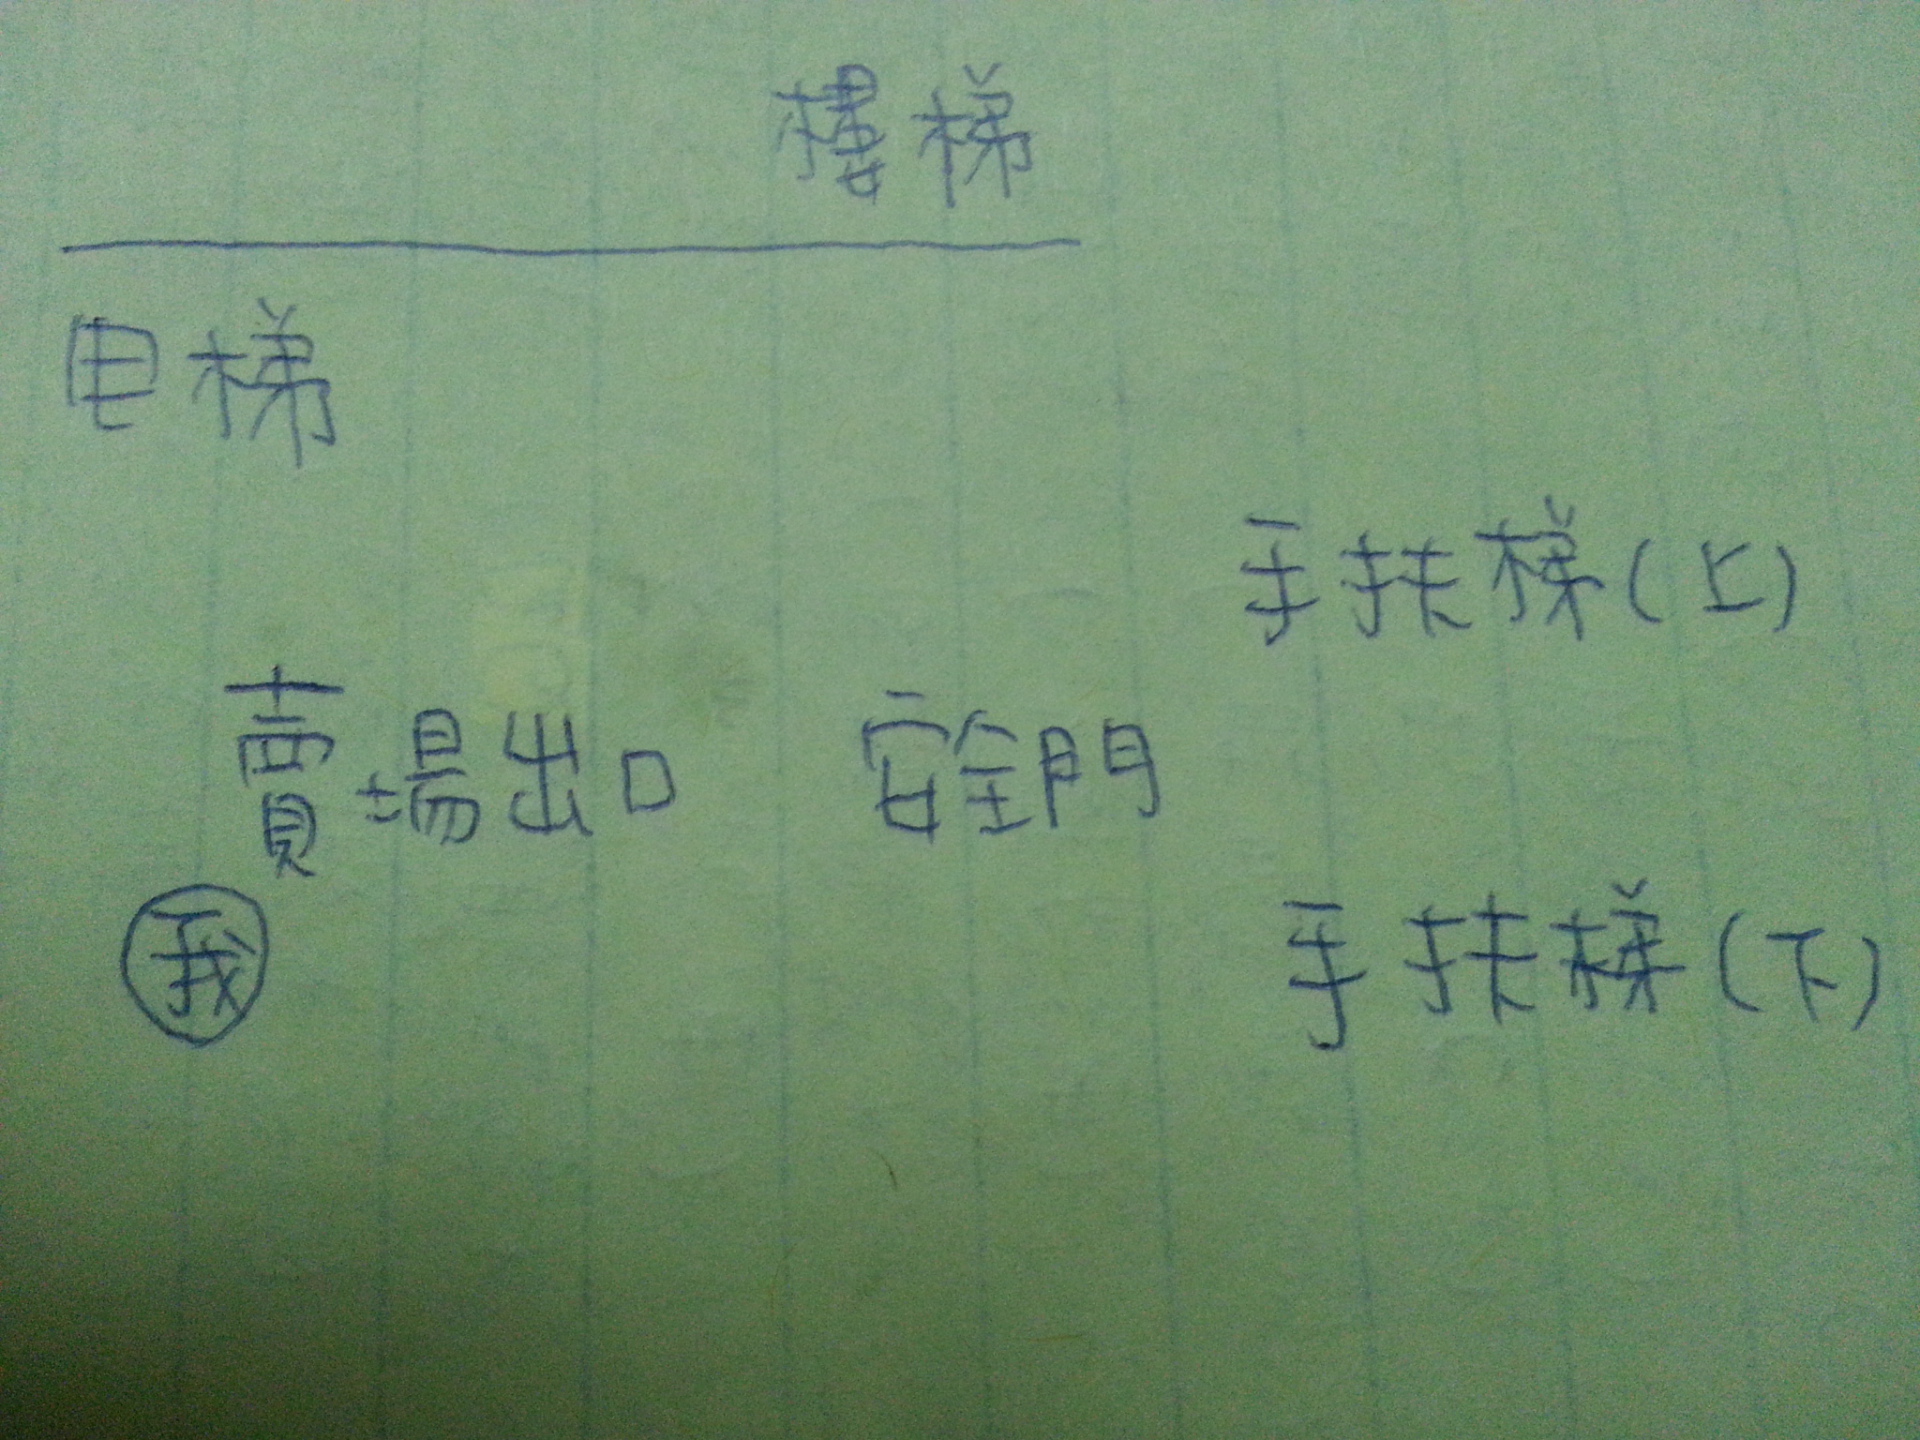 樓梯
电梯
手扶梯(上)
賣場出口 安全門
我
手扶梯(下)